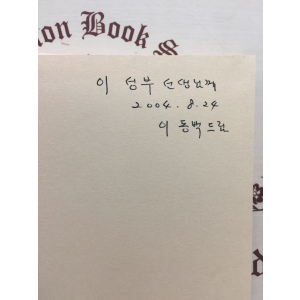 ion Book S
이 성부 선생님께
2004. 8. 24
이 동백 드림